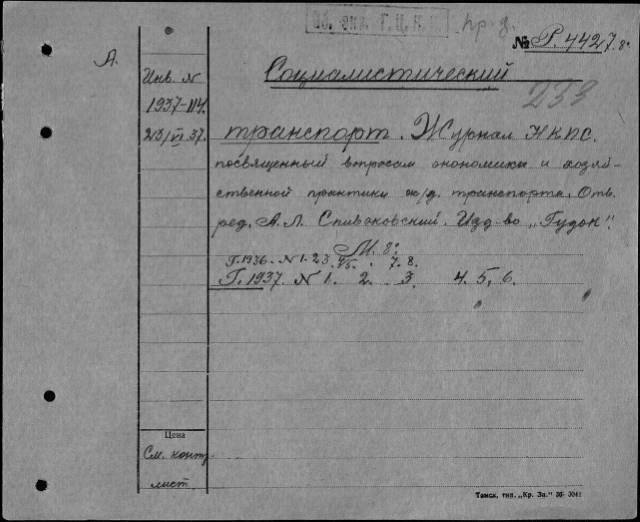 Об. экз. Г.Ц.К.П.
№ Р. 4427. 8°
А.
Инв. N
1937-114.
23/VI 37.
Социалистический
233
транспорт. Журнал НКПС.
посвященный вопросам экономики и хозяй-
ственной практики ж/д. транспорта. Отв.
ред. А. Л. Спиваковский. Изд-во „Гудок".
М. 8°
Г. 1936. N 1. 2 3. 4/5. 7. 8.
Г. 1937. N 1. 2. 3. 4. 5, 6.
Цена
См. контр.
лист.
Томск, тип. „Кр. Зн." 36-